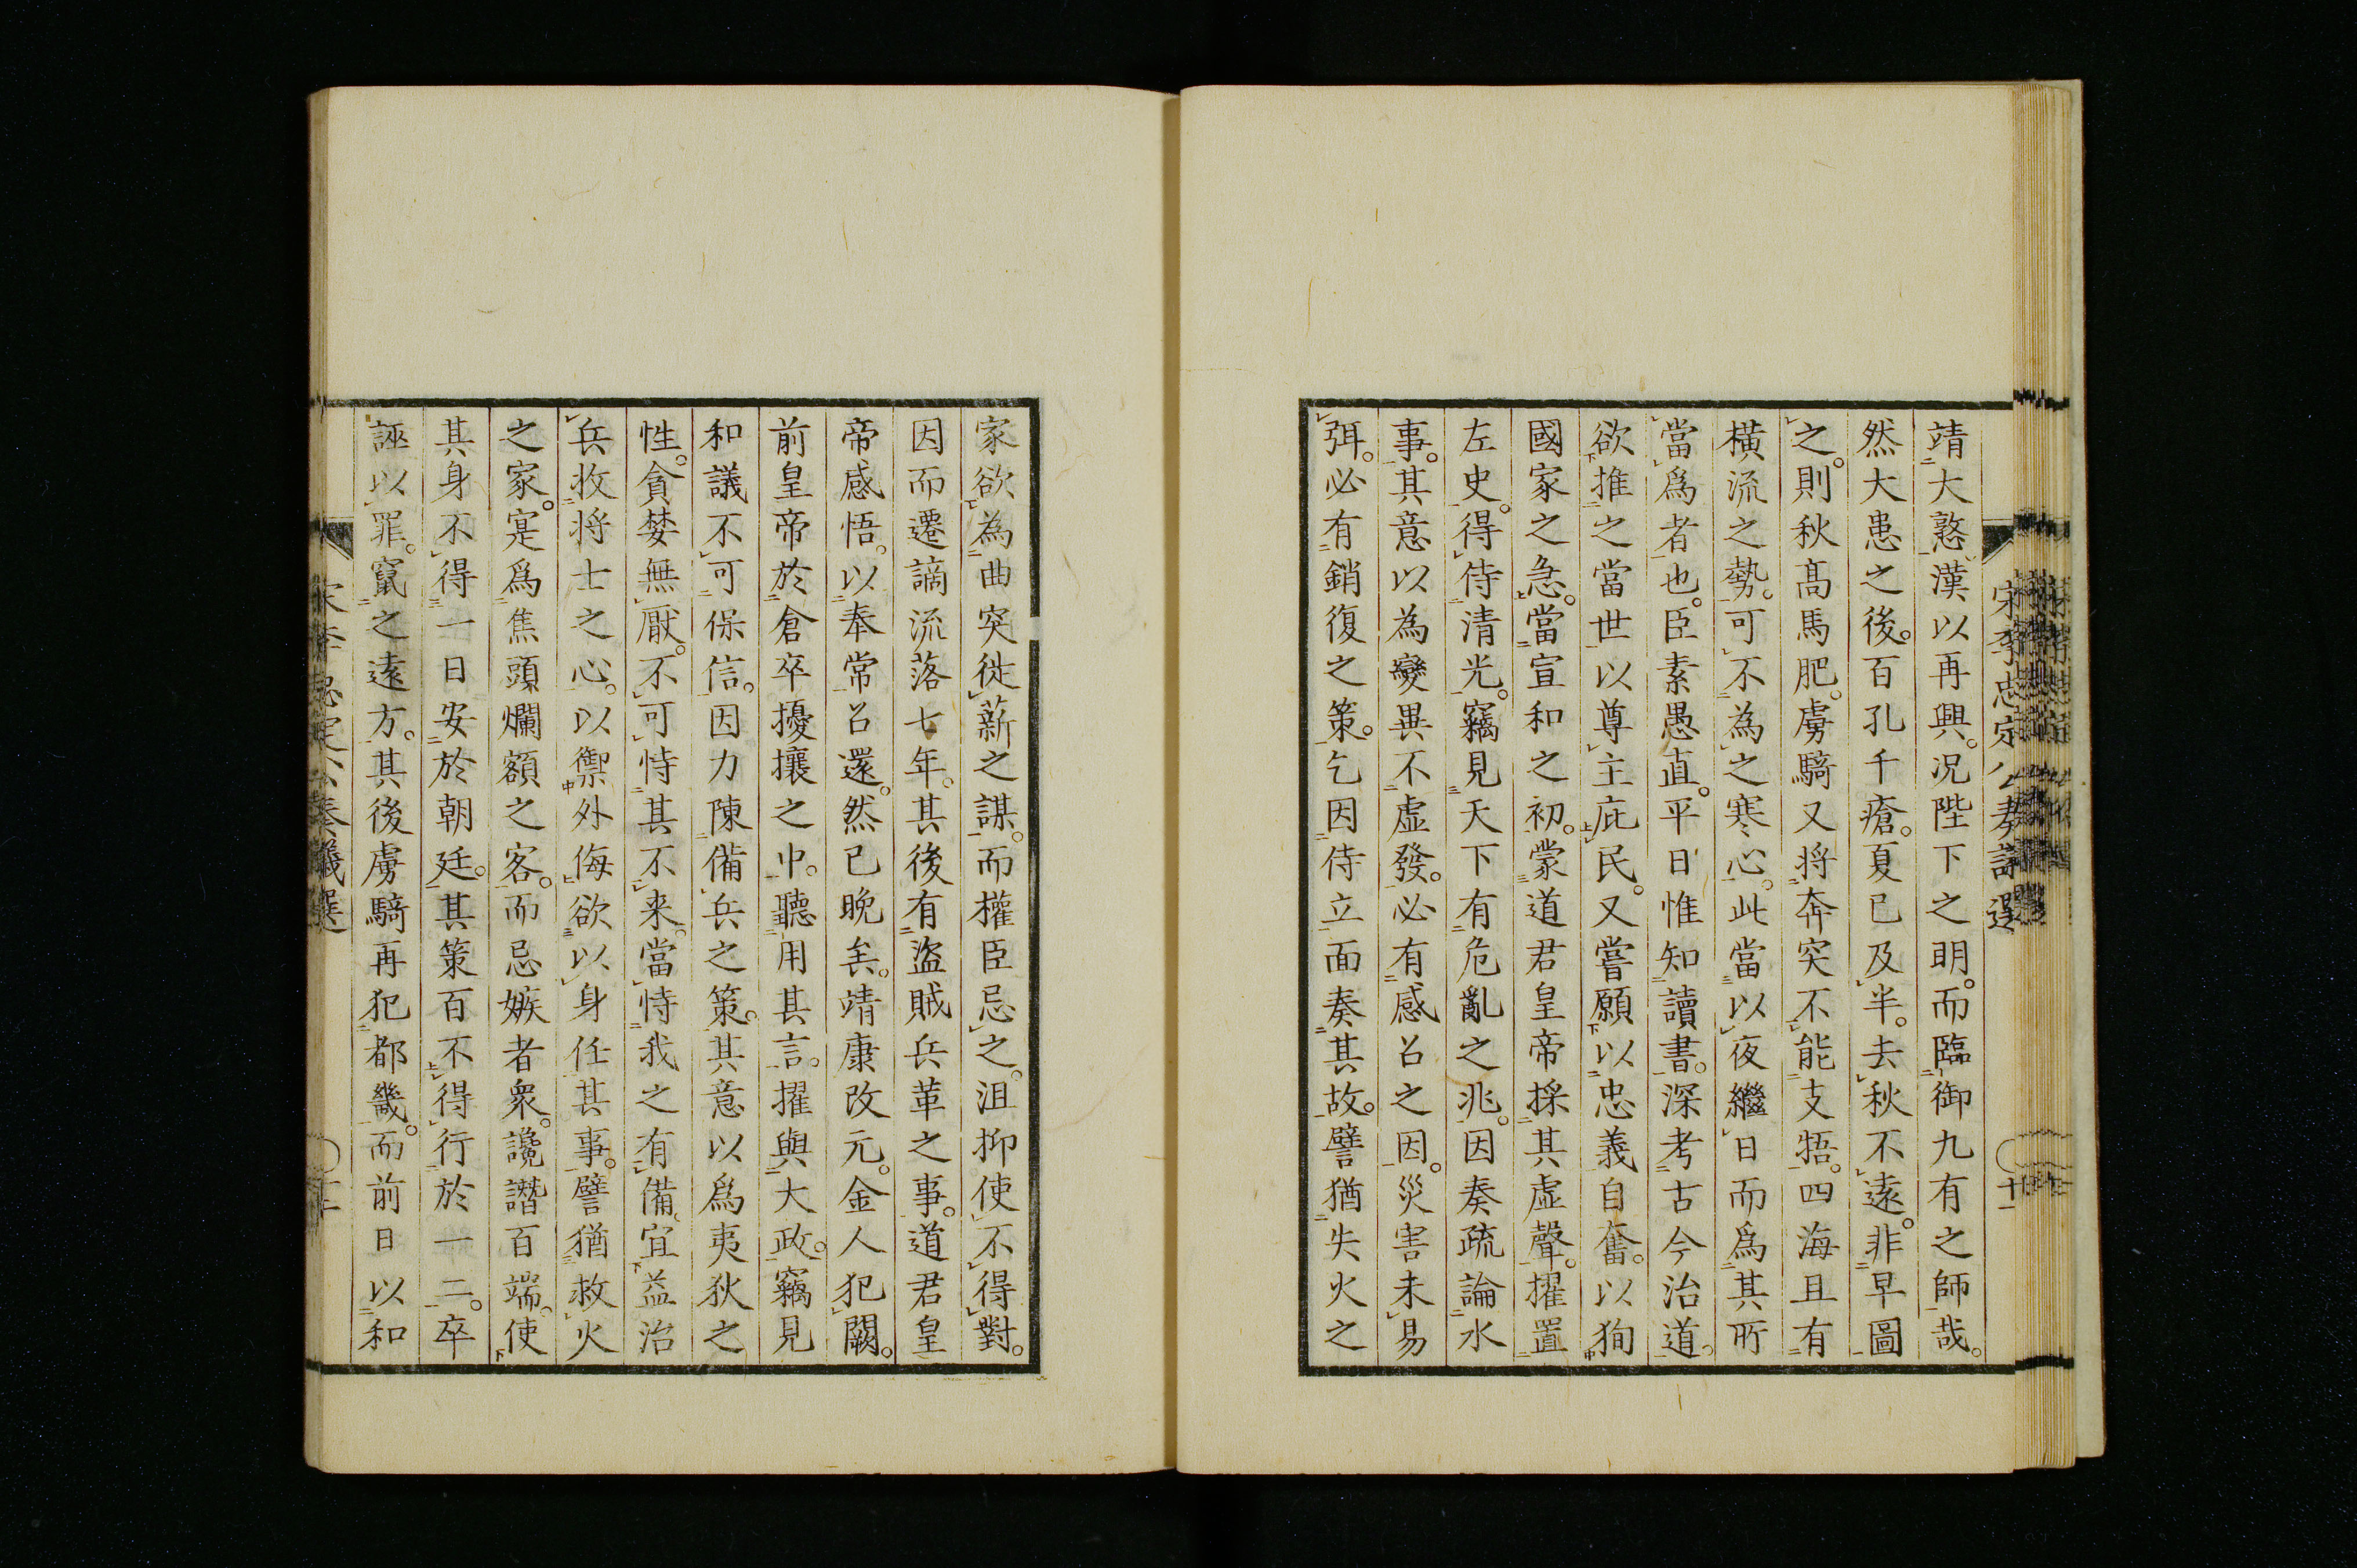 宋李忠定公奏議選
十一
靖大憝漢以再興。况陛下之明。而臨御九有之師哉。
然大患之後。百孔千瘡。夏已及半。去秋不遠。非早圖
之。則秋髙馬肥。虜騎又将奔突。不能支牾。四海且有
横流之勢。可不為之寒心。此當以夜繼日而爲其所
當爲者也。臣素愚直。平日惟知讀書。深考古今治道。
欲推之當世以尊主庇民。又嘗願以忠義自奮。以狥
國家之急。當宣和之初。蒙道君皇帝採其虛聲。擢置
左史。得侍清光。竊見天下有危亂之兆。因奏疏論水
事。其意以為變異不虛發。必有感召之因。災害未易
弭。必有銷復之策。乞因侍立面奏其故。譬猶失火之
家欲為曲突徙薪之謀。而權臣忌之。沮抑使不得對。
因而遷謫流落七年。其後有盜賊兵革之事。道君皇
帝感悟。以奉常召還。然已晚矣。靖康改元。金人犯闕。
前皇帝於倉卒擾攘之中。聽用其言。擢與大政。竊見
和議不可保信。因力陳備兵之策。其意以爲夷狄之
性。貪婪無厭。不可恃其不来。當恃我之有備。宜益治
兵收将士之心。以禦外侮欲以身任其事。譬猶救火
之家。寔爲焦頭爛額之客。而忌嫉者衆。讒譖百端。使
其身不得一日安於朝廷。其策百不得行於一二。卒
誣以罪。竄之遠方。其後虜騎再犯都畿。而前日以和